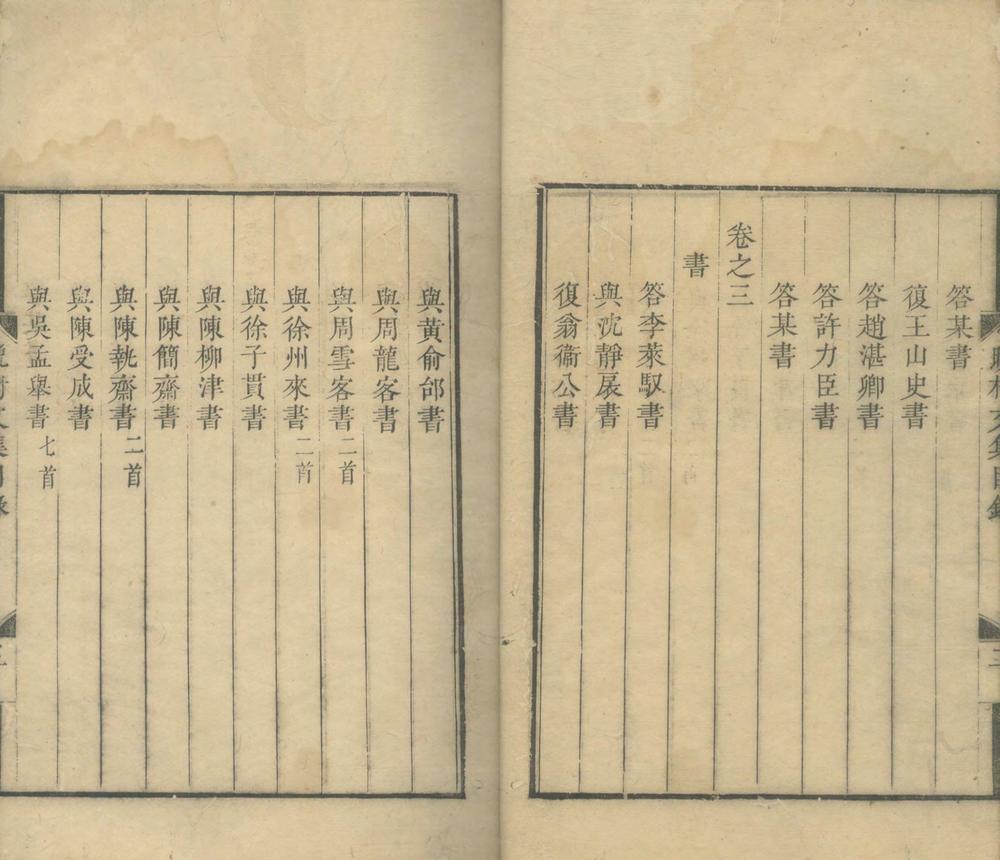 答某書
復王山史書
答趙湛卿書
答許力臣書
答某書
卷之三
書
答李萊馭書
與沈靜扆書
復翁衞公書
與黃俞邰書
與周龍客書
與周雪客書二首
與徐州來書二首
與徐子貫書
與陳柳津書
與陳簡齋書
與陳執齋書二首
與陳受成書
與吳孟舉書七首